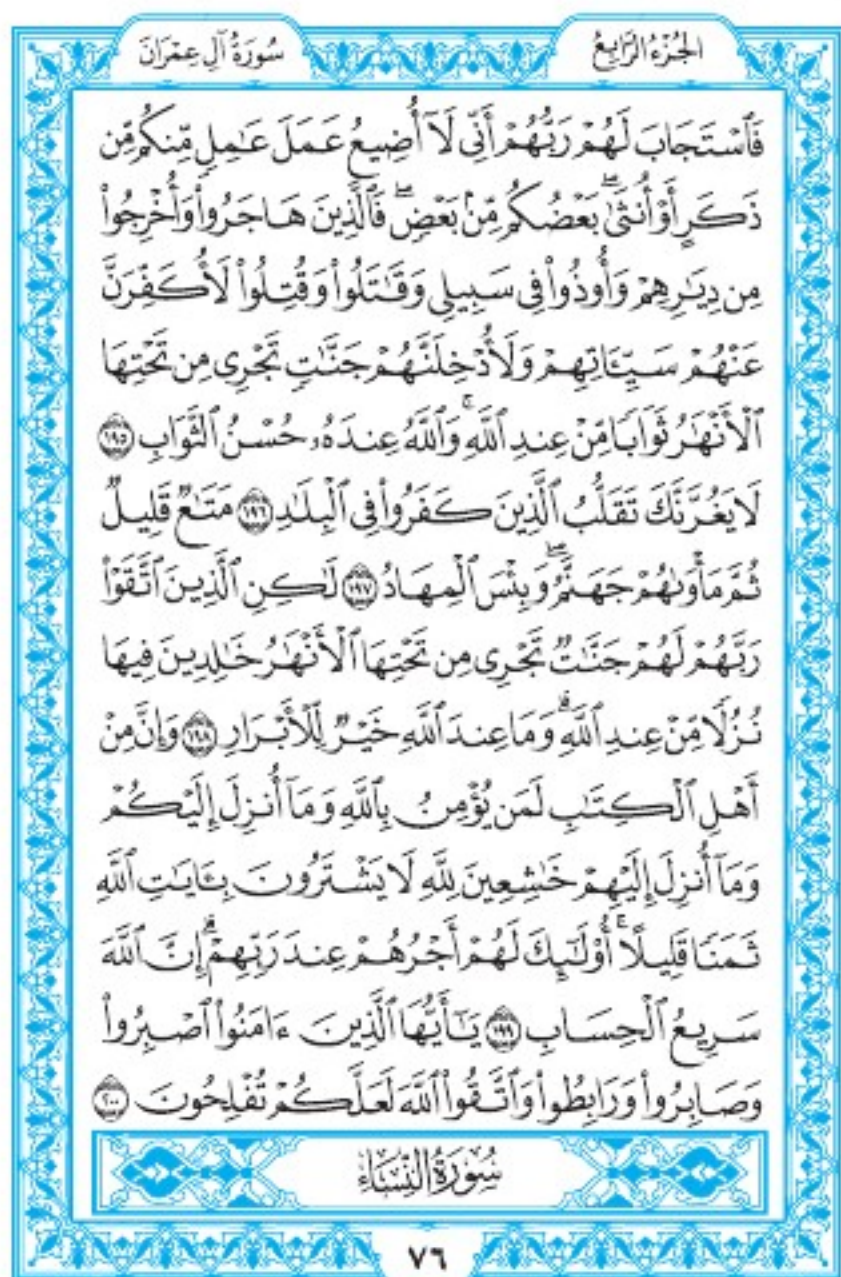 الجزء الرابع
سورة آل عمران
فَٱسْتَجَابَ لَهُمْ رَبُّهُمْ أَنِّى لَآ أُضِيعُ عَمَلَ عَـٰمِلٍ مِّنكُم مِّن
ذَكَرٍ أَوْ أُنثَىٰ ۖ بَعْضُكُم مِّنۢ بَعْضٍ ۖ فَٱلَّذِينَ هَاجَرُوا۟ وَأُخْرِجُوا۟
مِن دِيَـٰرِهِمْ وَأُوذُوا۟ فِى سَبِيلِى وَقَـٰتَلُوا۟ وَقُتِلُوا۟ لَأُكَفِّرَنَّ
عَنْهُمْ سَيِّـَٔاتِهِمْ وَلَأُدْخِلَنَّهُمْ جَنَّـٰتٍ تَجْرِى مِن تَحْتِهَا
ٱلْأَنْهَـٰرُ ثَوَابًا مِّنْ عِندِ ٱللَّهِ ۚ وَٱللَّهُ عِندَهُۥ حُسْنُ ٱلثَّوَابِ ١٩٥
لَا يَغُرَّنَّكَ تَقَلُّبُ ٱلَّذِينَ كَفَرُوا۟ فِى ٱلْبِلَـٰدِ ١٩٦ مَتَـٰعٌ قَلِيلٌ
ثُمَّ مَأْوَىٰهُمْ جَهَنَّمُ ۖ وَبِئْسَ ٱلْمِهَادُ ١٩٧ لَـٰكِنِ ٱلَّذِينَ ٱتَّقَوْا۟
رَبَّهُمْ لَهُمْ جَنَّـٰتٌ تَجْرِى مِن تَحْتِهَا ٱلْأَنْهَـٰرُ خَـٰلِدِينَ فِيهَا
نُزُلًا مِّنْ عِندِ ٱللَّهِ ۗ وَمَا عِندَ ٱللَّهِ خَيْرٌ لِّلْأَبْرَارِ ١٩٨ وَإِنَّ مِنْ
أَهْلِ ٱلْكِتَـٰبِ لَمَن يُؤْمِنُ بِٱللَّهِ وَمَآ أُنزِلَ إِلَيْكُمْ
وَمَآ أُنزِلَ إِلَيْهِمْ خَـٰشِعِينَ لِلَّهِ لَا يَشْتَرُونَ بِـَٔايَـٰتِ ٱللَّهِ
ثَمَنًا قَلِيلًا ۗ أُو۟لَـٰٓئِكَ لَهُمْ أَجْرُهُمْ عِندَ رَبِّهِمْ ۗ إِنَّ ٱللَّهَ
سَرِيعُ ٱلْحِسَابِ ١٩٩ يَـٰٓأَيُّهَا ٱلَّذِينَ ءَامَنُوا۟ ٱصْبِرُوا۟
وَصَابِرُوا۟ وَرَابِطُوا۟ وَٱتَّقُوا۟ ٱللَّهَ لَعَلَّكُمْ تُفْلِحُونَ ٢٠٠
سورة النساء
٧٦